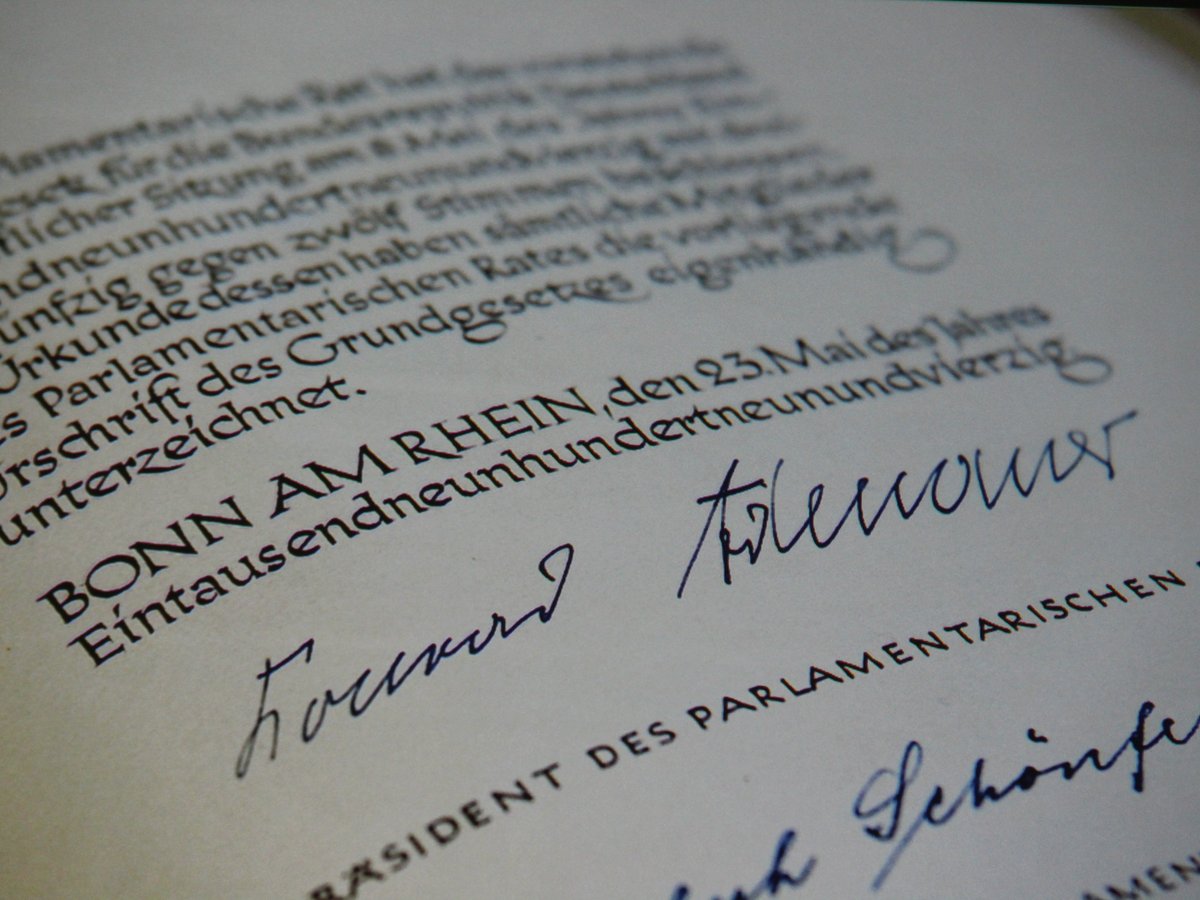 lamentarische Rat hat das vorstehende
esetz für die Bundesrepublik Deutschland
tlicher Sitzung am 8. Mai des Jahres Ein-
ndneunhundertneunundvierzig mit drei-
ünfzig gegen zwölf Stimmen beschlossen.
Urkunde dessen haben sämtliche Mitglieder
s Parlamentarischen Rates die vorliegende
Urschrift des Grundgesetzes eigenhändig
unterzeichnet.
BONN AM RHEIN, den 23. Mai des Jahres
Eintausendneunhundertneunundvierzig
Konrad Adenauer
RÄSIDENT DES PARLAMENTARISCHEN
Schönfe
AMEN